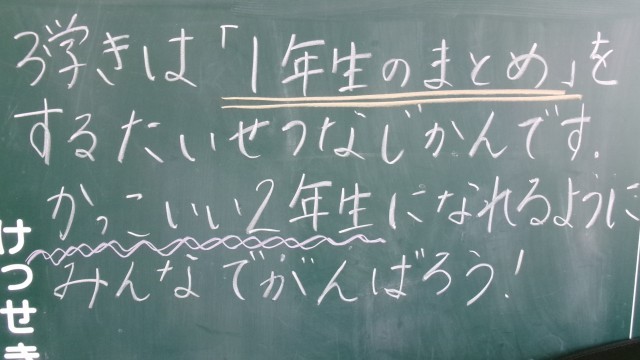 3学きは「1年生のまとめ」を
するたいせつなじかんです.
かっこいい2年生になれるように
みんなでがんばろう!
けつせき